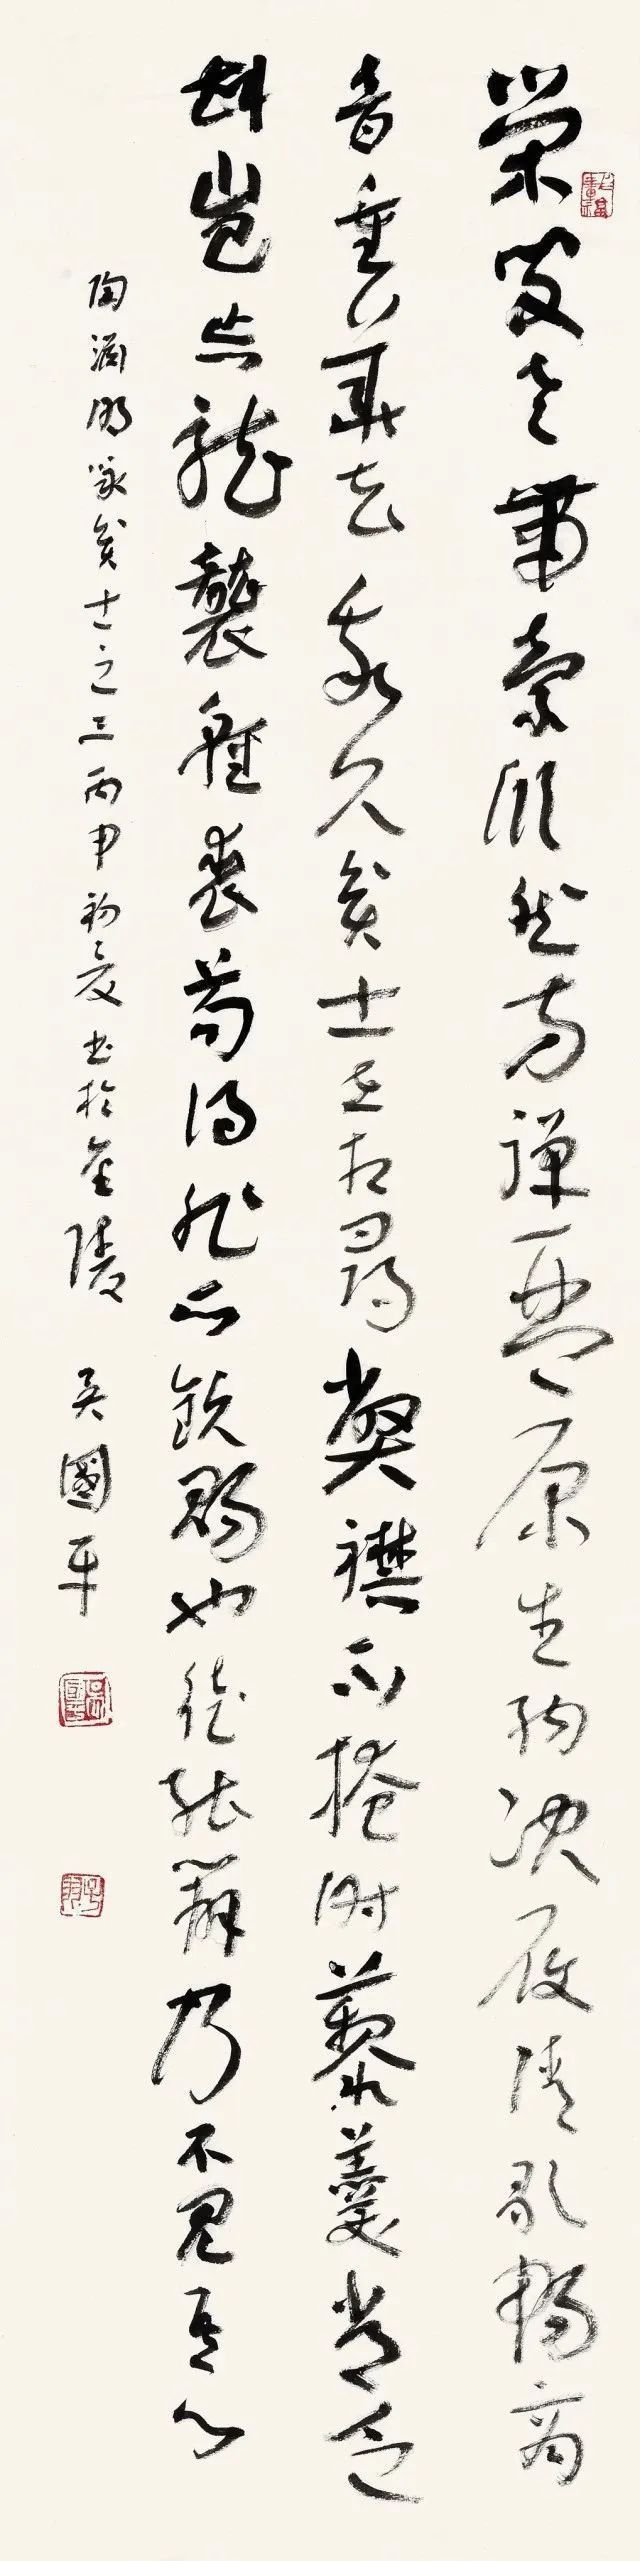 榮叟老帶索欣然方彈琴原生納決履清歌暢商
音重華去我久貧士世相尋弊襟不掩肘藜羹常乏
斟豈忘龍襲輕裘苟得非所欽賜也徒能辯乃不見吾心
陶淵明詠貧士之三丙申初夏書於金陵 吳國平